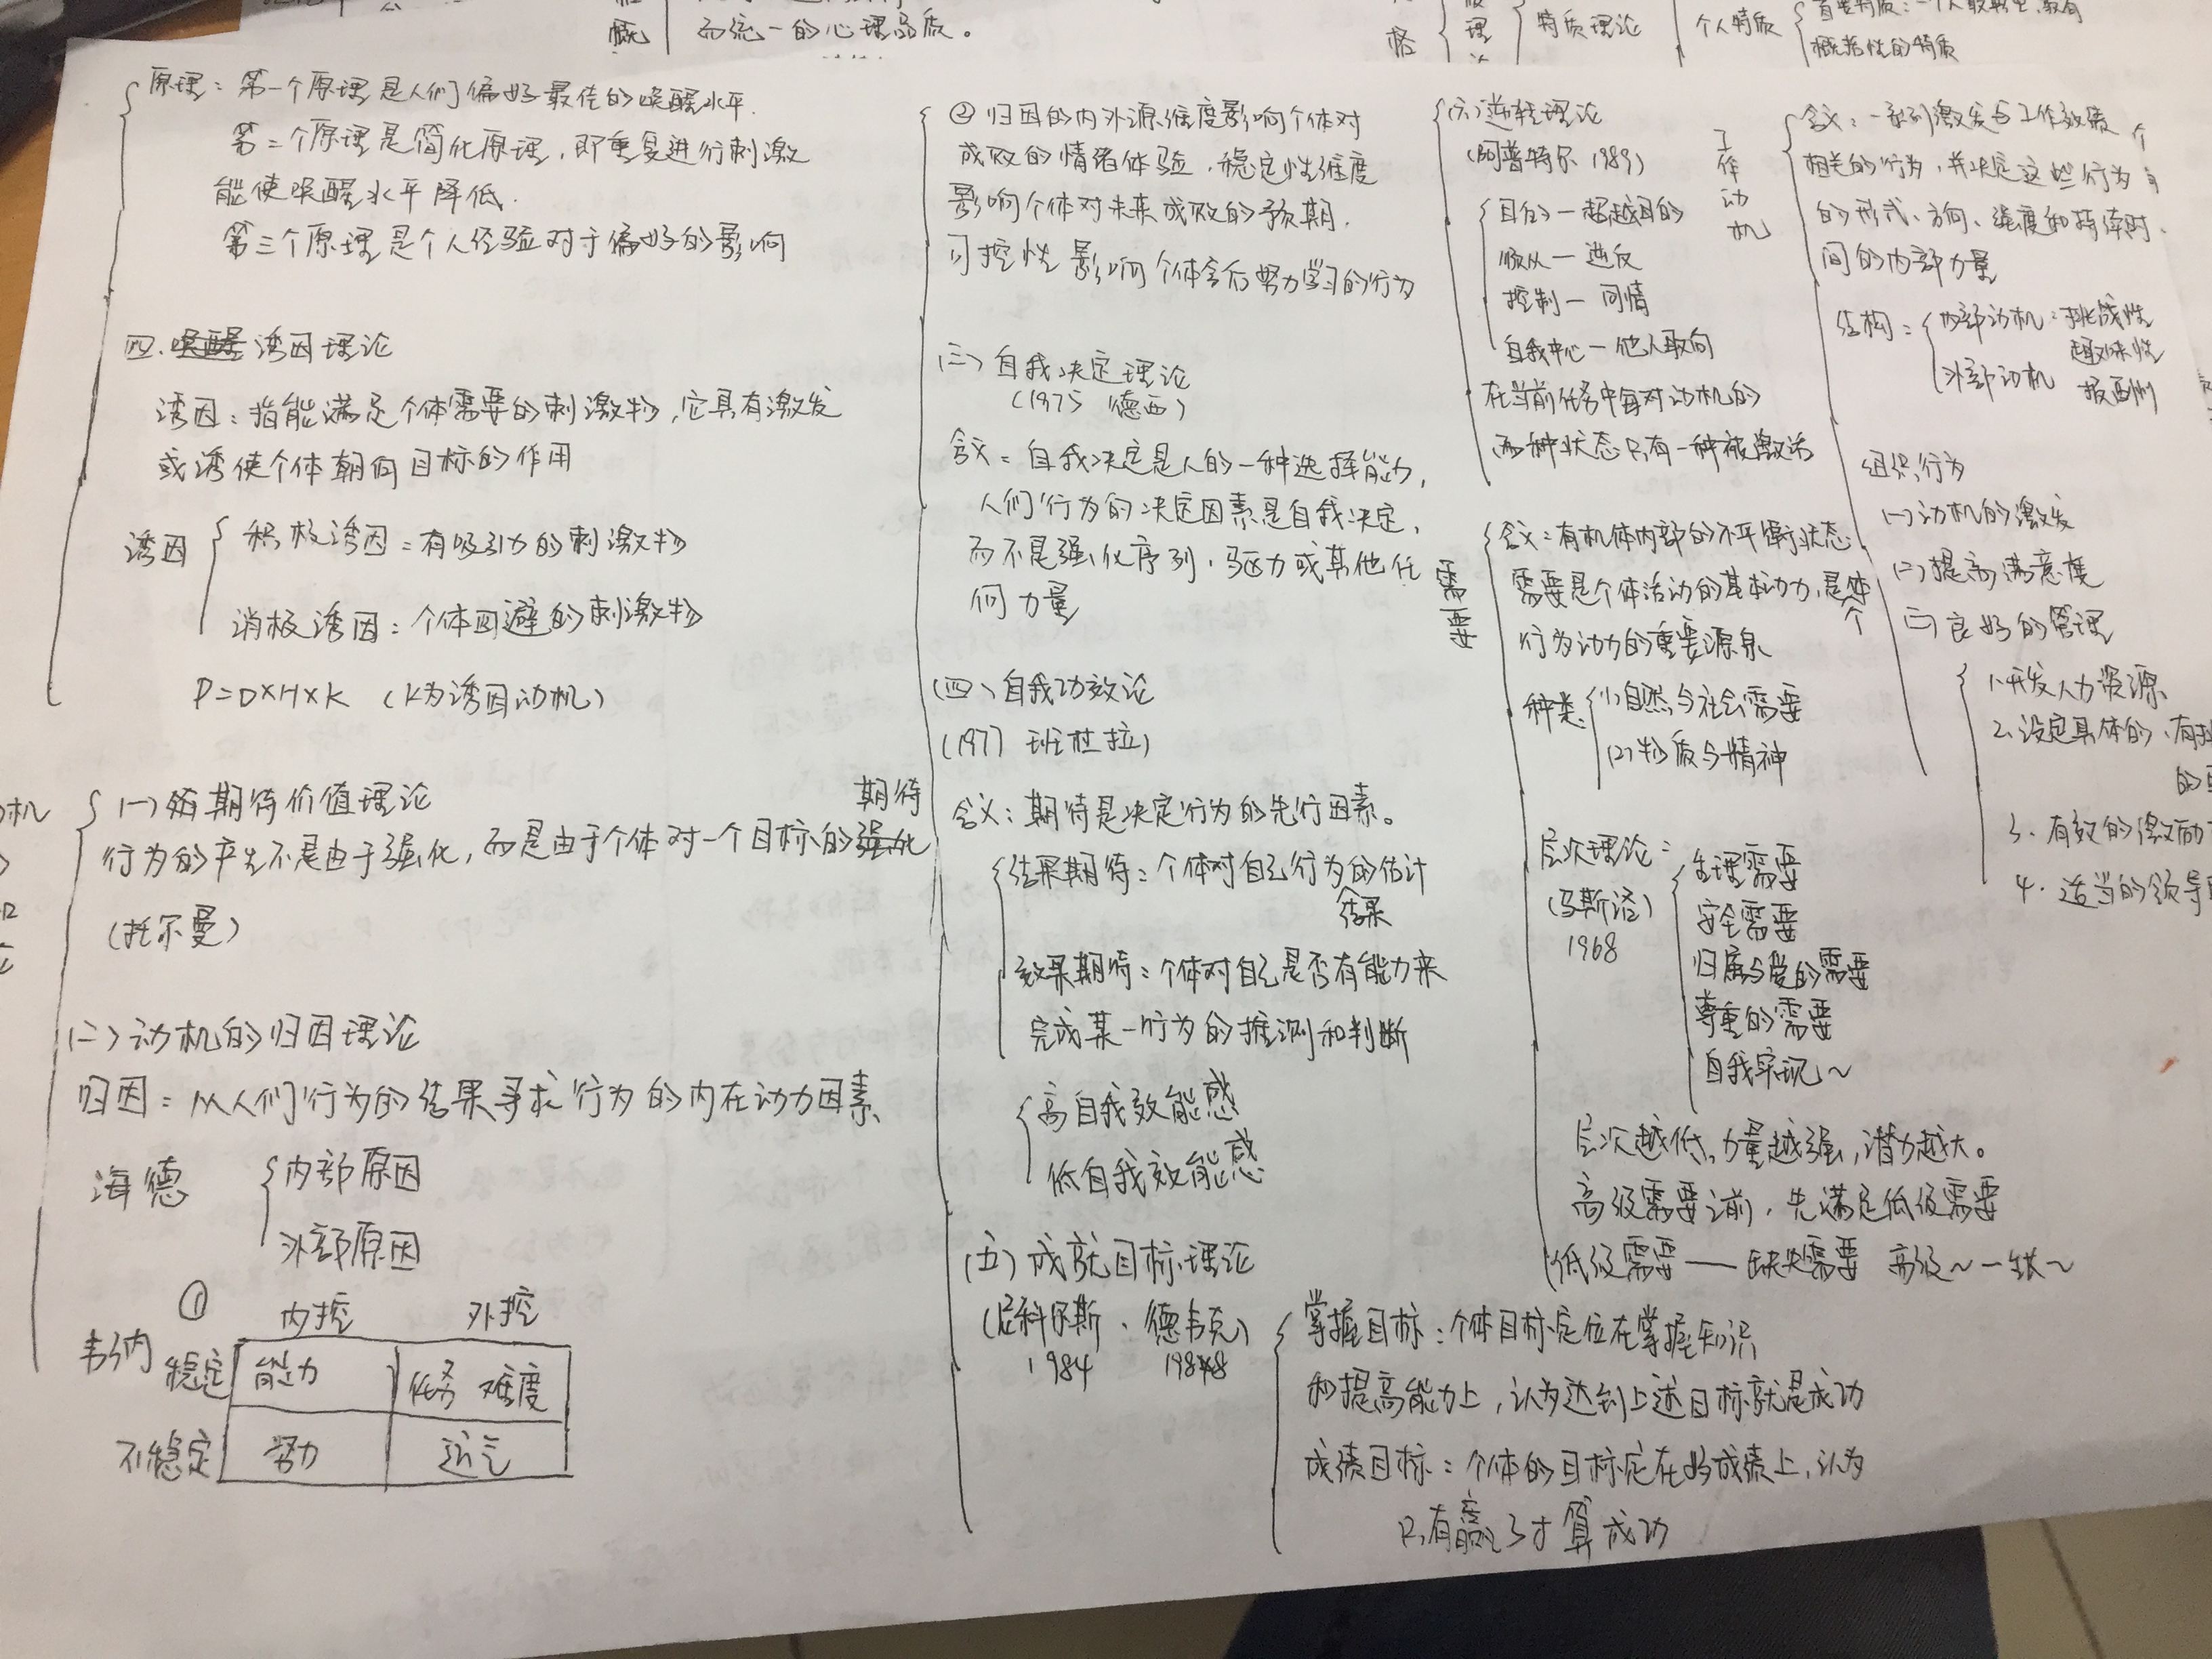 而统一的心理品质。
概
格
理
特质理论
个人特质
概括性的特质
原理：第一个原理是人们偏好最佳的唤醒水平.
第二个原理是简化原理，即重复进行刺激
能使唤醒水平降低.
第三个原理是个人经验对于偏好的影响
四.唤醒 诱因理论
诱因：指能满足个体需要的刺激物，它具有激发
或诱使个体朝向目标的作用
诱因
积极诱因：有吸引力的刺激物
消极诱因：个体回避的刺激物
P=D×H×K （K为诱因动机）
机
(一) 期待价值理论
期待
行为的产生不是由于强化，而是由于个体对一个目标的强化
(托尔曼)
(二) 动机的归因理论
归因：从人们行为的结果寻求行为的内在动力因素
海德
内部原因
外部原因
①
内控 外控
韦纳
稳定 能力 任务难度
不稳定 努力 运气
② 归因的内外源维度影响个体对
成败的情绪体验，稳定性维度
影响个体对未来成败的预期.
可控性影响个体今后努力学习的行为
(三) 自我决定理论
(1975 德西)
含义：自我决定是人的一种选择能力，
人们行为的决定因素是自我决定，
而不是强化序列、驱力或其他任
何力量
(四) 自我功效论
(1977 班杜拉)
含义：期待是决定行为的先行因素。
结果期待：个体对自己行为的估计
结果
效果期待：个体对自己是否有能力来
完成某一行为的推测和判断
高自我效能感
低自我效能感
(五) 成就目标理论
(尼科尔斯、德韦克)
1984
掌握目标：个体目标定位在掌握知识
和提高能力上，认为达到上述目标就是成功
成绩目标：个体的目标定在好成绩上，认为
只有赢了才算成功
(六) 逆转理论
(阿普特尔 1989)
目的一超越目的
顺从一逆反
控制一同情
自我中心一他人取向
在当前任务中每对动机的
两种状态只有一种被激活
需要
含义：有机体内部的不平衡状态
需要是个体活动的基本动力，是个体
行为动力的重要源泉
种类
(1) 自然与社会需要
(2) 物质与精神
层次理论：
(马斯洛)
1968
生理需要
安全需要
归属与爱的需要
尊重的需要
自我实现~
层次越低，力量越强，潜力越大。
高级需要之前，先满足低级需要
低级需要——缺失需要 高级~一生长~
工作动机
含义：一系列激发与工作效绩
相关的行为，并决定这些行为
的形式、方向、强度和持续时
间的内部力量
结构：
内部动机：挑战性
趣味性
外部动机 报酬
组织行为
(一) 动机的激发
(二) 提高满意度
(三) 良好的管理
1.开发人力资源
2.设定具体的、有
的
3.有效的激励
4.适当的领导